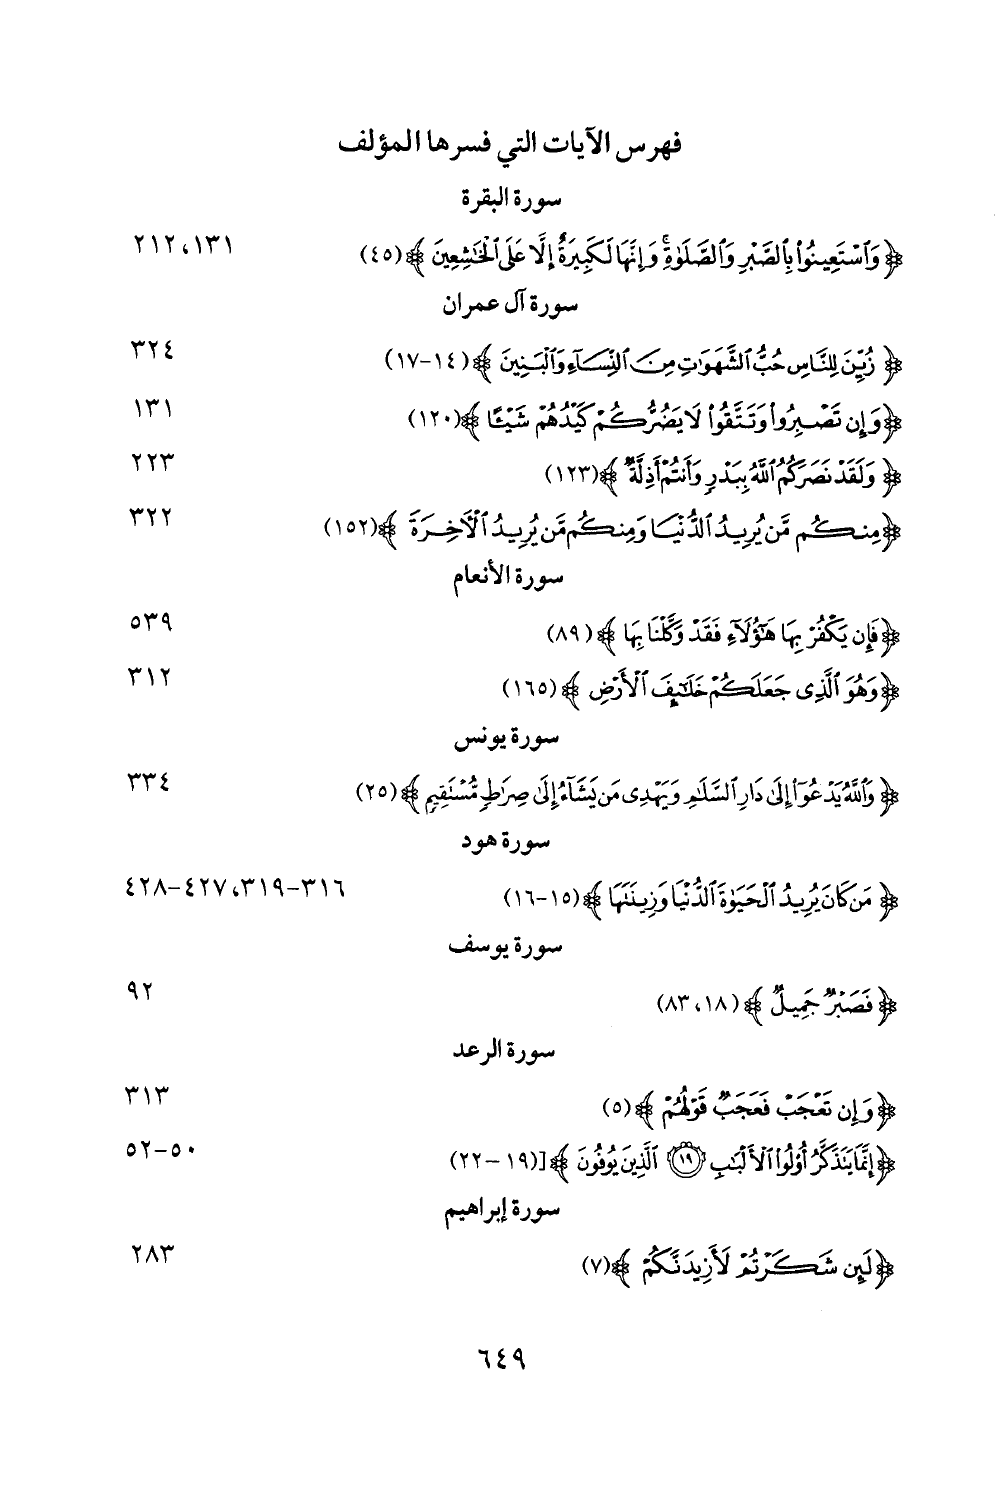 فهرس الآيات التي فسرها المؤلف
سورة البقرة
﴿ وَٱسْتَعِينُوا۟ بِٱلصَّبْرِ وَٱلصَّلَوٰةِ ۚ وَإِنَّهَا لَكَبِيرَةٌ إِلَّا عَلَى ٱلْخَٰشِعِينَ ﴾ (٤٥) ١٣١، ٢١٢
سورة آل عمران
﴿ زُيِّنَ لِلنَّاسِ حُبُّ ٱلشَّهَوَٰتِ مِنَ ٱلنِّسَآءِ وَٱلْبَنِينَ ﴾ (١٤-١٧) ٣٢٤
﴿ وَإِن تَصْبِرُوا۟ وَتَتَّقُوا۟ لَا يَضُرُّكُمْ كَيْدُهُمْ شَيْـًٔا ﴾ (١٢٠) ١٣١
﴿ وَلَقَدْ نَصَرَكُمُ ٱللَّهُ بِبَدْرٍ وَأَنتُمْ أَذِلَّةٌ ﴾ (١٢٣) ٢٢٣
﴿ مِنكُم مَّن يُرِيدُ ٱلدُّنْيَا وَمِنكُم مَّن يُرِيدُ ٱلْـَٔاخِرَةَ ﴾ (١٥٢) ٣٢٢
سورة الأنعام
﴿ فَإِن يَكْفُرْ بِهَا هَٰٓؤُلَآءِ فَقَدْ وَكَّلْنَا بِهَا ﴾ (٨٩) ٥٣٩
﴿ وَهُوَ ٱلَّذِى جَعَلَكُمْ خَلَٰٓئِفَ ٱلْأَرْضِ ﴾ (١٦٥) ٣١٢
سورة يونس
﴿ وَٱللَّهُ يَدْعُوٓا۟ إِلَىٰ دَارِ ٱلسَّلَٰمِ وَيَهْدِى مَن يَشَآءُ إِلَىٰ صِرَٰطٍ مُّسْتَقِيمٍ ﴾ (٢٥) ٣٣٤
سورة هود
﴿ مَن كَانَ يُرِيدُ ٱلْحَيَوٰةَ ٱلدُّنْيَا وَزِينَتَهَا ﴾ (١٥-١٦) ٣١٦-٣١٩، ٤٢٧-٤٢٨
سورة يوسف
﴿ فَصَبْرٌ جَمِيلٌ ﴾ (١٨، ٨٣) ٩٢
سورة الرعد
﴿ وَإِن تَعْجَبْ فَعَجَبٌ قَوْلُهُمْ ﴾ (٥) ٣١٣
﴿ إِنَّمَا يَتَذَكَّرُ أُو۟لُوا۟ ٱلْأَلْبَٰبِ ١٩ ٱلَّذِينَ يُوفُونَ ﴾ [(١٩-٢٢) ٥٠-٥٢
سورة إبراهيم
﴿ لَئِن شَكَرْتُمْ لَأَزِيدَنَّكُمْ ﴾ (٧) ٢٨٣
٦٤٩